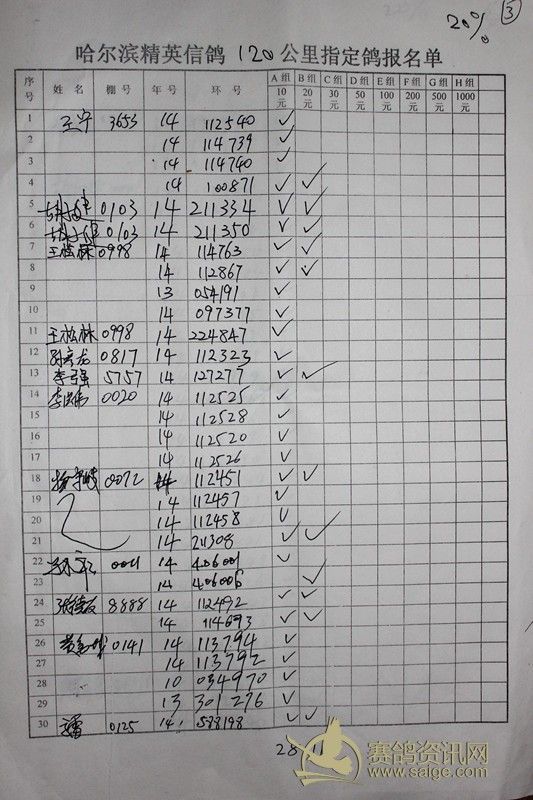 20% ③
哈尔滨精英信鸽120公里指定鸽报名单
序号 姓 名 棚 号 年 号 环 号 A组 10元 B组 20元 C组 30元 D组 50元 E组 100元 F组 200元 G组 500元 H组 1000元
1 王宁 3653 14 112540 ✓
2 14 114739 ✓
3 14 114740 ✓
4 14 100871 ✓ ✓
5 0103 14 211334 ✓ ✓
6 0103 14 211350 ✓ ✓
7 王松林 0998 14 114763 ✓ ✓
8 14 112867 ✓ ✓
9 13 054191 ✓
10 14 097377 ✓
11 王松林 0998 14 224847 ✓
12 0817 14 112323 ✓
13 李强 5757 14 127277 ✓ ✓
14 李洪伟 0020 14 112525 ✓
15 14 112528 ✓
16 14 112520 ✓
17 14 112526 ✓
18 0072 14 112451 ✓ ✓
19 14 112457 ✓
20 14 112458 ✓
21 14 211308 ✓ ✓
22 0011 14 406001 ✓
23 14 406006 ✓
24 8888 14 112492 ✓ ✓
25 14 114693 ✓ ✓
26 0141 14 113794 ✓
27 14 113792 ✓
28 10 034970 ✓
29 13 301276 ✓
30 0125 14 578198 ✓ ✓
28 11
赛鸽资讯网
www.saige.com